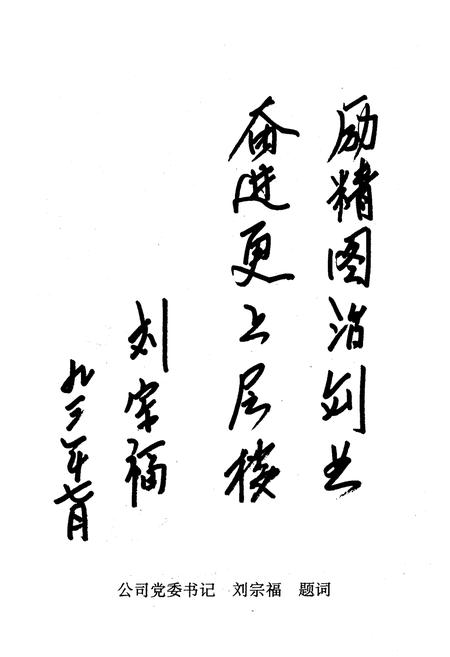 励精图治创业
奋进更上层楼
刘宗福
九三年七月
公司党委书记 刘宗福 题词